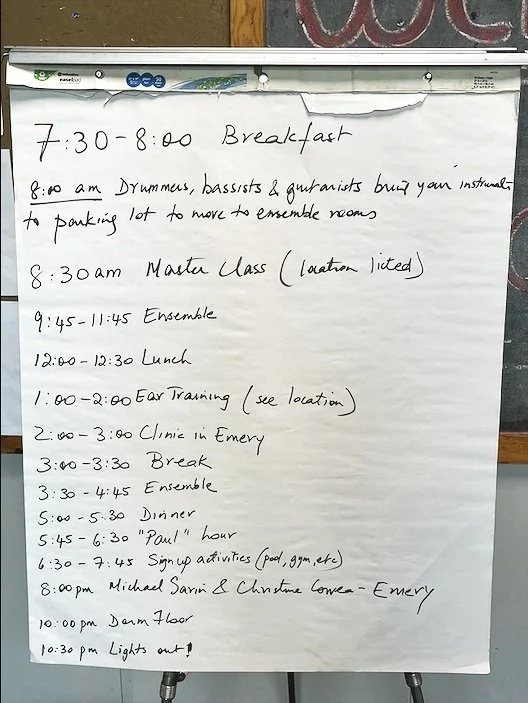 WEL
easelpad
7:30-8:00 Breakfast
8:00 am Drummers, bassists & guitarists bring your instruments
to parking lot to move to ensemble rooms
8:30am Master Class (location listed)
9:45-11:45 Ensemble
12:00-12:30 Lunch
1:00-2:00 Ear Training (see location)
2:00-3:00 Clinic in Emery
3:00-3:30 Break
3:30-4:45 Ensemble
5:00-5:30 Dinner
5:45-6:30 "Paul" hour
6:30-7:45 Signup activities (pool, gym, etc)
8:00pm Michael Sarin & Christine Correa-Emery
10:00pm Dorm Floor
10:30 pm Lights out!